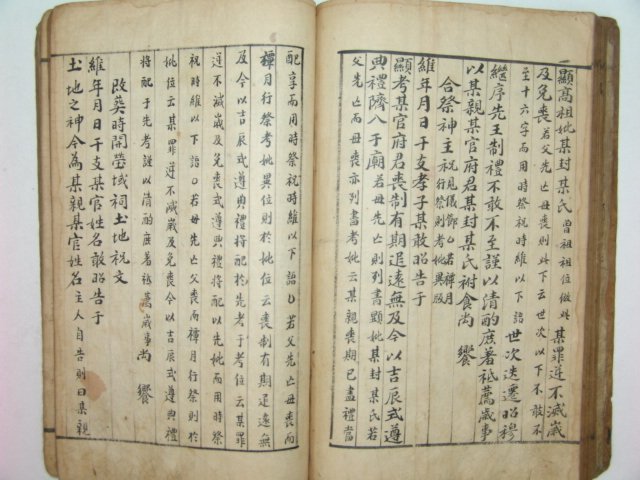 顯高祖妣某封某氏 曾祖祖位倣此 某罪逆不滅歲
及免喪 若父先亡母喪則 以下云世次以下不敢不
至十六字而用時祭祝時維以下語 世次迭遷昭穆
繼序先王制禮不敢不至謹以清酌庶羞祗薦歲事
以某親某官府君某封某氏祔食尚 饗
合祭神主 祝見儀節 若禫月行祭則考妣異版
維年月日干支孝子某敢昭告于
顯考某官府君喪制有期追遠無及今以吉辰式遵
典禮隮入于廟 若母先亡則列書顯妣某封某氏若
父先亡而母喪亦列書考妣云某親喪期已盡禮當
配享而用時祭祝時維以下語 若父先亡母喪而
禫月行祭考妣異位則於妣位云喪制有期追遠無
及今以吉辰式遵典禮將配於先考于考位云某罪
逆不滅歲及免喪式遵典禮將配以先妣而用時祭
祝時維以下語 若母先亡父喪而禫月行祭則於
妣位云某罪逆不滅歲及免喪今以吉辰式遵典禮
將配于先考謹以清酌庶羞祗薦歲事尚 饗
改葬時開塋域祠土地祝文
維年月日干支某官姓名敢昭告于
土地之神今為某親某官姓名 主人自告則曰某親